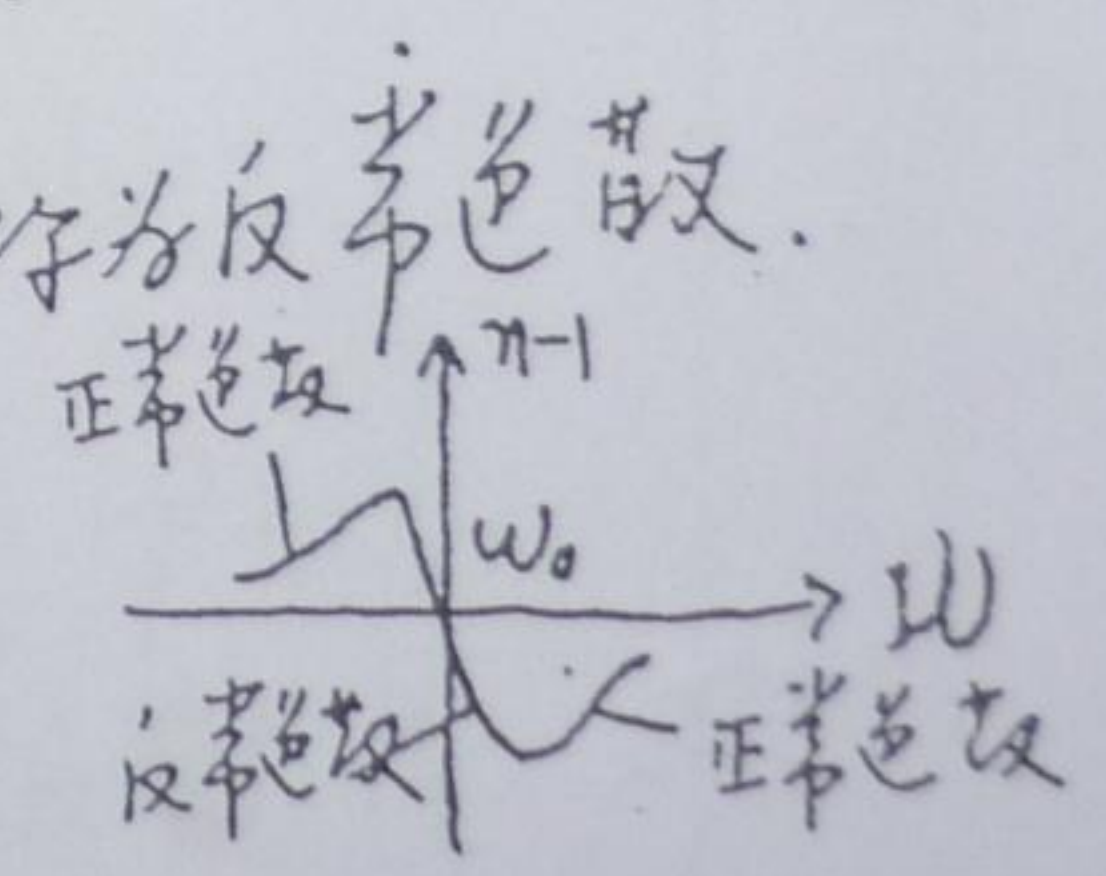 称为反常色散.
正常色散
n-1
ω₀
ω
反常色散
正常色散